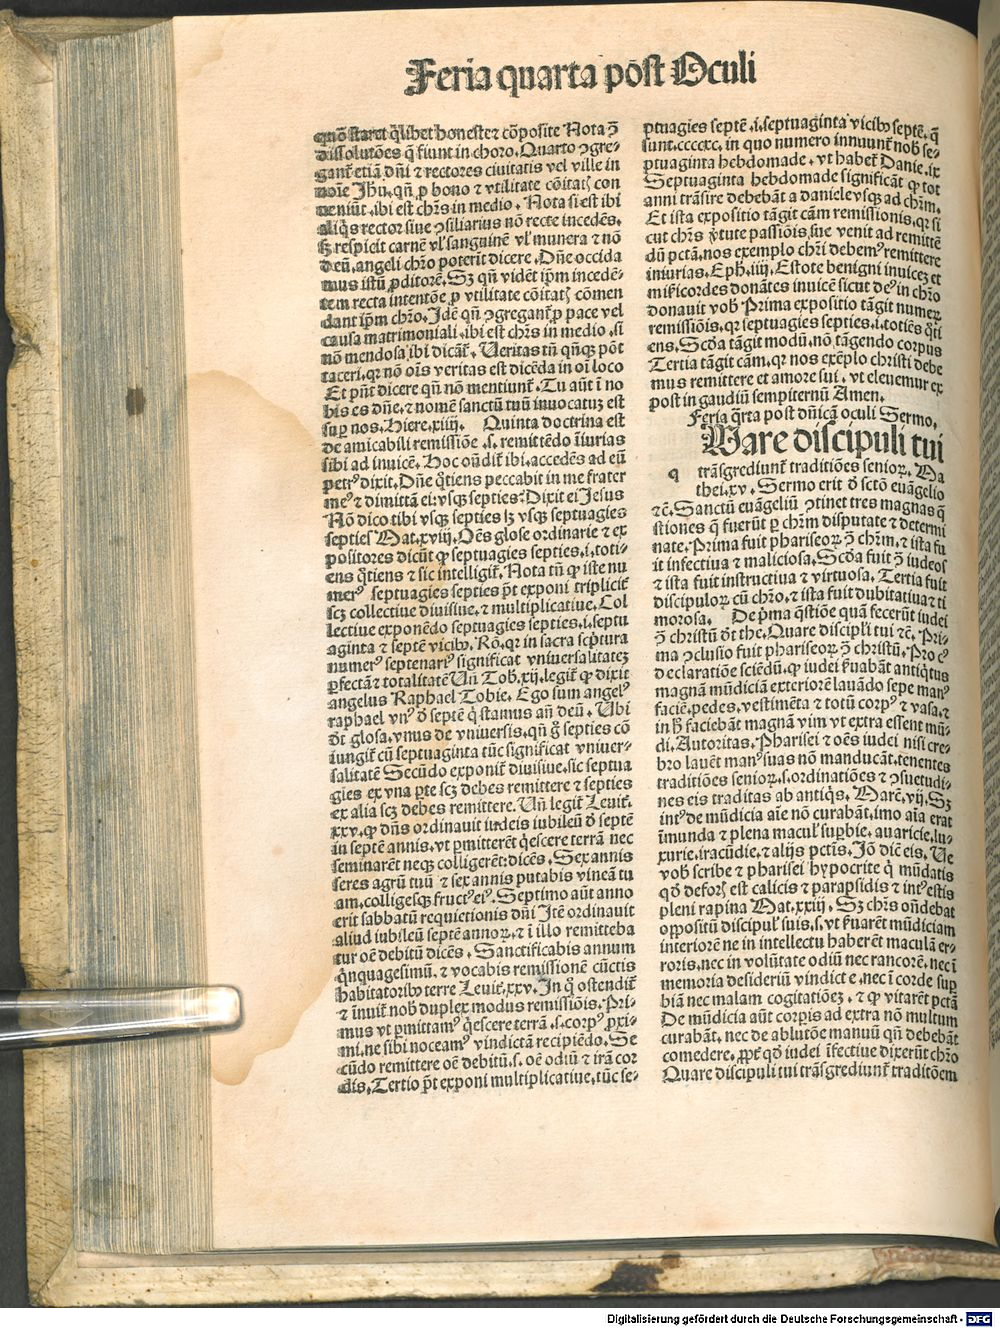 Feria quarta post Oculi
qñ staret q̃libet honeste ⁊ cõposite Nota ↄ̃
dissolutões q̃ fiunt in choro. Quarto ↄgre-
gant̃ etiã dñi ⁊ rectores ciuitatis vel ville in
noie Jhu, qñ ꝓ bono ⁊ vtilitate cõitatꝭ con
veniũt, ibi est chr̃s in medio. Nota si est ibi
aliq̃s rector siue ↄsiliarius nõ recte incedẽs,
sꝫ respicit carnẽ vl' sanguinẽ vl' munera ⁊ nõ
deũ, angeli chr̃o poterit̃ dicere. Dñe occida
mus istũ ꝓditorẽ. Sꝫ qñ vidẽt ip̃m incedẽ-
tem recta intentõe ꝓ vtilitate cõitatꝭ cõmen
dant ip̃m chr̃o. Idẽ qñ ↄgregant̃ ꝓ pace vel
causa matrimoniali, ibi est chr̃s in medio, si
nõ mendosa ibi dicãt̃. Ueritas tñ qñqꝫ põt
taceri, qꝛ nõ oĩs veritas est dicẽda in oĩ loco
Et pñt dicere qñ nõ mentiunt̃. Tu aũt ĩ no
bis es dñe, ⁊ nomẽ sanctũ tuũ inuocatuꝫ est
suꝑ nos. Hiere. xiiij. Quinta doctrina est
de amicabili remissiõe .s. remittẽdo ĩiurias
sibi ad inuicẽ. Hoc oñdit̃ ibi, accedẽs ad eũ
petrꝰ dixit. Dñe q̃tiens peccabit in me frater
meꝰ ⁊ dimittã ei: vsqꝫ septies? Dixit ei Jesus
Nõ dico tibi vsqꝫ septies sꝫ vsqꝫ septuagies
septies Mat. xviij. Oẽs glose ordinarie ⁊ ex
positores dicũt ꝙ septuagies septies, i. toti-
ens q̃tiens ⁊ sic intelligit̃. Nota tñ ꝙ iste nu
merꝰ septuagies septies põt exponi triplicit̃
scꝫ collectiue diuisiue, ⁊ multiplicatiue. Col
lectiue exponẽdo septuagies septies, i. septu
aginta ⁊ septẽ vicibꝰ. Rõ, qꝛ in sacra scp̃tura
numerꝰ septenariꝰ significat vniuersalitateꝫ
ꝑfectã ⁊ totalitatẽ Uñ Tob. xij. legit̃ ꝙ dixit
angelus Raphael Tobie. Ego sum angelꝰ
raphael vnꝰ ð septẽ q̃ stamus añ deũ. Ubi
ðt glosa, vnus de vniuersis, qñ g̃ septies cõ
iungit̃ cũ septuaginta tũc significat vniuer-
salitatẽ Secũdo exponit̃ diuisiue, sic septua
gies ex vna ꝑte scꝫ debes remittere ⁊ septies
ex alia scꝫ debes remittere. Uñ legit̃ Leuit̃.
xxv. ꝙ dñs ordinauit iudeis iubileũ ð septẽ
in septẽ annis, vt ꝑmitterẽt q̃escere terrã nec
seminarẽt neqꝫ colligerẽt: dicẽs. Sex annis
seres agrũ tuũ ⁊ sex annis putabis vineã tu
am, colligesqꝫ fructꝰ eiꝰ. Septimo aũt anno
erit sabbatũ requietionis dñi Itẽ ordinauit
aliud iubileũ septẽ annoꝝ, ⁊ ĩ illo remitteba
tur oẽ debitũ dicẽs. Sanctificabis annum
q̃nquagesimũ, ⁊ vocabis remissionẽ cũctis
habitatoribꝰ terre Leuit̃. xxv. In q̃ ostendit̃
⁊ ĩnuit̃ nob̃ duplex modus remissiõis. Pri-
mus vt ꝑmittamꝰ q̃escere terrã .s. corpꝰ ꝓxi-
mi, ne sibi noceamꝰ vindictã recipiẽdo. Se
cũdo remittere oẽ debitũ, s. oẽ odiũ ⁊ irã cor
dis. Tertio põt exponi multiplicatiue, tũc se-
ptuagies septẽ .i. septuaginta vicibꝰ septẽ, q̃
sunt. ccccxc, in quo numero innuunt̃ nob̃ se-
ptuaginta hebdomade, vt habet̃ Danie. ix
Septuaginta hebdomade significãt ꝙ tot
anni trãsire debebãt a daniele vsqꝫ ad chr̃m.
Et ista expositio tãgit cãm remissionis, qꝛ si
cut chr̃s v̓tute passiõis sue venit ad remittẽ
dũ pctã, nos exemplo chr̃i debemꝰ remittere
iniurias. Eph. iiij. Estote benigni inuiceꝫ et
mĩcordes donãtes inuicẽ sicut deꝰ in chr̃o
donauit vob̃ Prima expositio tãgit numeꝝ
remissiõis, qꝛ septuagies septies, i. totiẽs q̃ti
ens. Scða tãgit modũ, nõ tãgendo corpus
Tertia tãgit cãm, qꝛ nos exẽplo christi debe
mus remittere et amore sui, vt eleuemur ex
post in gaudiũ sempiternũ Amen.
Feria q̃rta post dñicã oculi Sermo.
Uare discipuli tui
q trãsgrediunt̃ traditiões senioꝝ. Ma
thei. xv. Sermo erit ð scto euãgelio
⁊c̃. Sanctũ euãgeliũ ↄtinet tres magnas q̃
stiones q̃ fuerũt ꝑ chr̃m disputate ⁊ determi
nate. Prima fuit phariseoꝝ ↄ̃ chr̃m, ⁊ ista fu
it infectiua ⁊ maliciosa. Scða fuit ↄ̃ iudeos
⁊ ista fuit instructiua ⁊ virtuosa. Tertia fuit
discipuloꝝ cũ chr̃o, ⁊ ista fuit dubitatiua ⁊ ti
morosa. De pͥma q̃stiõe quã fecerũt iudei
ↄ̃ christũ ðt the. Quare discipl'i tui ⁊c̃. Pri-
ma ↄclusio fuit phariseoꝝ ↄ̃ christũ. Pro eꝰ
declaratiõe sciẽdũ, ꝙ iudei ẜuabãt antiq̃tus
magnã mũdiciã exteriorẽ lauãdo sepe manꝰ
faciẽ, pedes, vestimẽta ⁊ totũ corpꝰ ⁊ vasa, ⁊
in hͦ faciebãt magnã vim vt extra essent mũ-
di. Autoritas. Pharisei ⁊ oẽs iudei nisi cre-
bro lauẽt manꝰ suas nõ manducãt, tenentes
traditiões senioꝝ, s. ordinatiões ⁊ ↄsuetudi-
nes eis traditas ab antiq̃s. Marc̃. vij. Sꝫ
intꝰ de mũdicia aĩe nõ curabãt, imo aĩa erat
ĩmunda ⁊ plena macul' suꝑbie, auaricie, lu-
xurie, iracũdie, ⁊ alijs pctĩs. Jõ dic̃ eis. Ue
vob̃ scribe ⁊ pharisei hypocrite q̃ mũdatis
qð deforꝭ est calicis ⁊ parapsidis ⁊ intꝰ estis
pleni rapina Mat. xxiij. Sꝫ chr̃s oñdebat
oppositũ discipul' suis, s. vt ẜuarẽt mũdiciam
interiorẽ ne in intellectu haberẽt maculã er-
roris, nec in volũtate odiũ nec rancorẽ, nec ĩ
memoria desideriũ vindicte, nec ĩ corde suꝑ
biã nec malam cogitatiõeꝫ, ⁊ ꝙ vitarẽt pctã
De mũdicia aũt corꝑis ad extra nõ multum
curabãt, nec de ablutõe manuũ qñ debebãt
comedere, ꝓpt̃ qð iudei ĩfectiue dixerũt chr̃o
Quare discipuli tui trãsgrediunt̃ traditõem
Digitalisierung gefördert durch die Deutsche Forschungsgemeinschaft - DFG